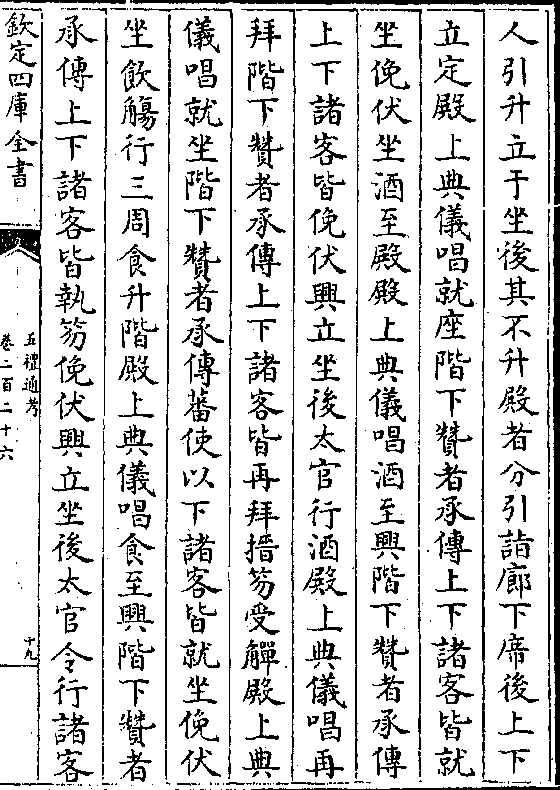 人引升立于坐後其不升殿者分引詣廊下席後上下
立定殿上典儀唱就座階下贊者承傳上下諸客皆就
坐俛伏坐酒至殿殿上典儀唱酒至興階下贊者承傳
上下諸客皆俛伏興立坐後太官行酒殿上典儀唱再
拜階下贊者承傳上下諸客皆再拜搢笏受觶殿上典
儀唱就坐階下贊者承傳蕃使以下諸客皆就坐俛伏
坐飲觴行三周食升階殿上典儀唱食至興階下贊者
承傳上下諸客皆執笏俛伏興立坐後太官令行諸客
欽定四庫全書
五禮通考
卷二百二十六
十九